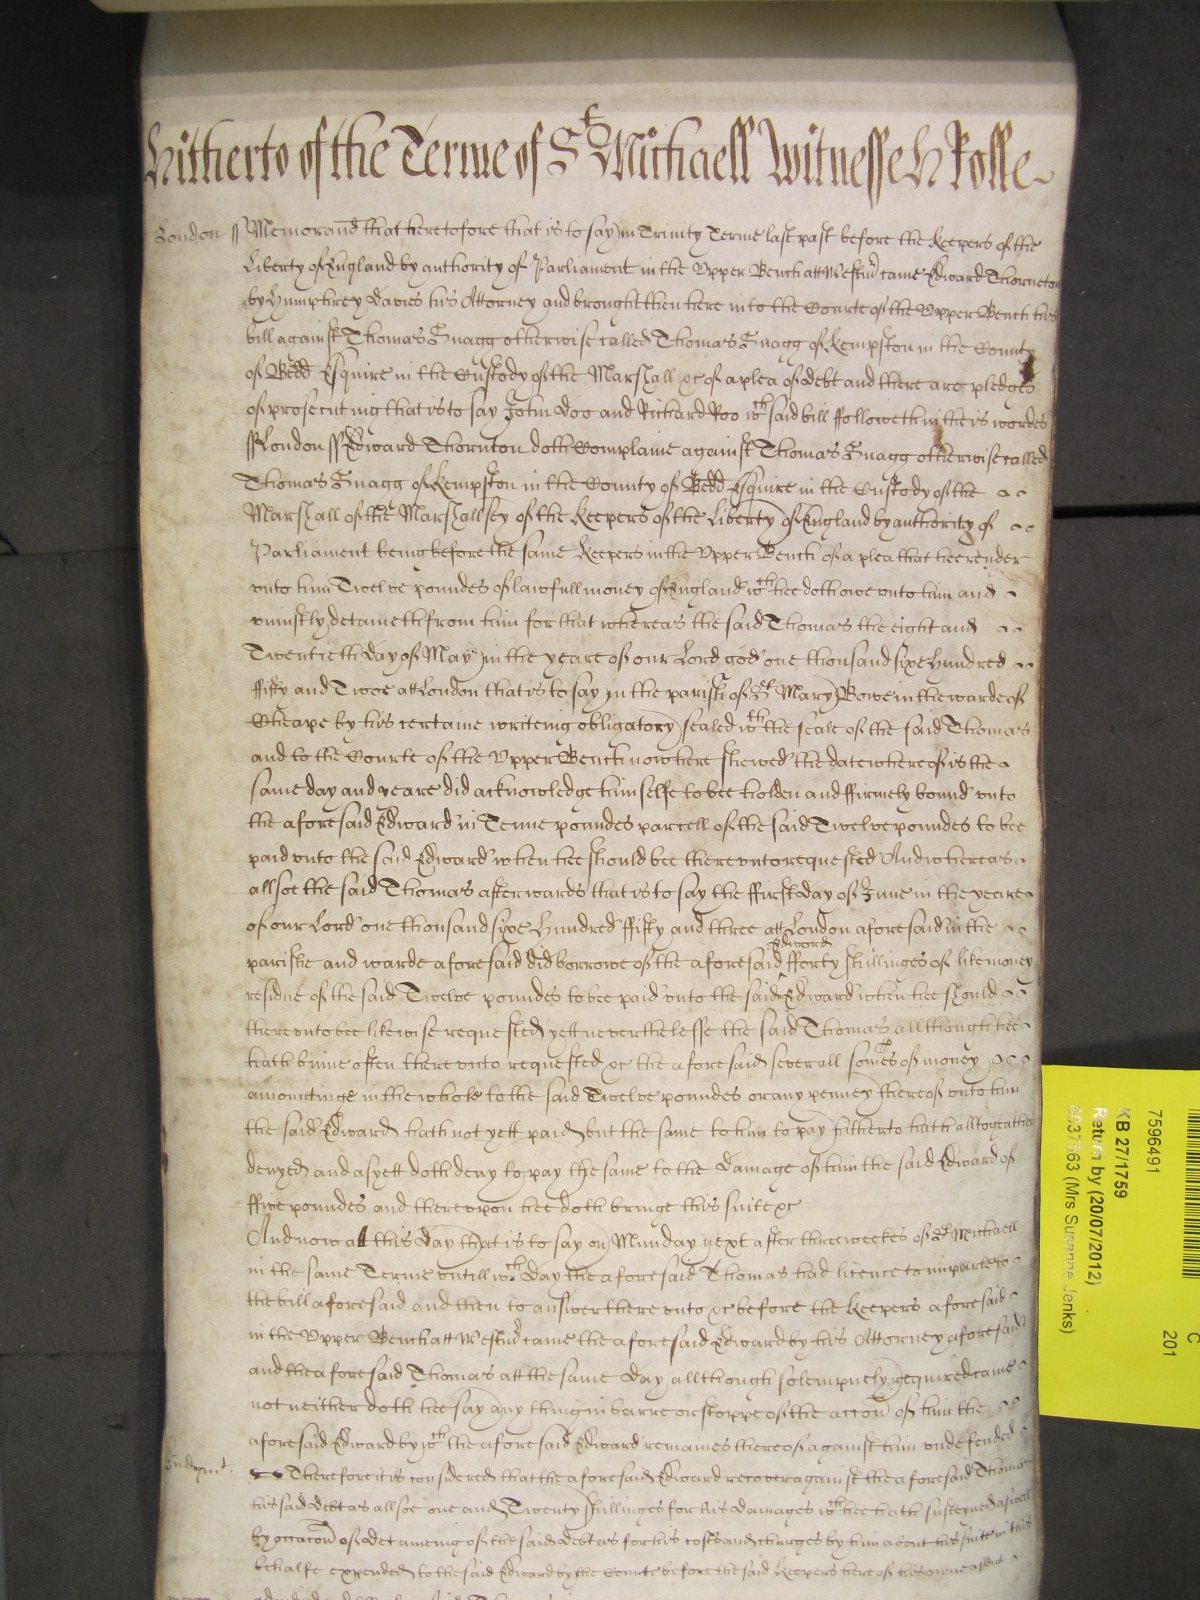 Hitherto of the Terme of St Michaell Witnesse H Rolle
London ss Memorand that heretofore that is to say in Trinity Terme last past before the Keepers of the
Liberty of England by authority of Parliament in the Upper Bench att Westmr came Edward Thorneton
by Humphrey Davies his Attorney and brought then here into the Courte of the Upper Bench his
bill against Thomas Snagg otherwise called Thomas Snagg of Kempston in the County
of Bedd Esquire in the Custody of the Marshall &c of a plea of debt and there are pledges
of prosecuting that is to say John Doo and Richard Roo wch said bill followeth in theis wordes
ss London ss Edward Thornton doth Complaine against Thomas Snagg otherwise called
Thomas Snagg of Kempston in the County of Bedd Esquire in the Custody of the
Marshall of the Marshallsey of the Keepers of the Liberty of England by authority of
Parliament being before the same Keepers in the Upper Bench of a plea that hee render
unto him Twelve poundes of lawfull money of England wch hee doth owe unto him and
uniustly detaineth from him for that whereas the said Thomas the eight and
Twentieth day of May in the yeare of our Lord god one thousand sixe Hundred
ffifty and Twoe att London that is to say in the parish of St Mary Bowe in the warde of
Cheape by his certaine writeing obligatory sealed wth the seale of the said Thomas
and to the Courte of the Upper Bench now here shewed the date whereof is the
same day and yeare did acknowledge himselfe to bee holden and ffirmely bound unto
the aforesaid Edward in Tenne poundes parcell of the said Twelve poundes to bee
paid unto the said Edward when hee should bee thereunto requested And whereas
allsoe the said Thomas afterwards that is to say the ffirst day of June in the yeare
of our Lord one thousand sixe Hundred ffifty and three att London aforesaid in the
parishe and warde aforesaid did borrowe of the aforesaid Edward fforty shillinges of like money
residue of the said Twelve poundes to bee paid unto the said Edward when hee should
thereunto bee likewise requested yett neverthelesse the said Thomas allthough hee
hath binne often thereunto requested &c the aforesaid severall somes of money
amountinge in the whole to the said Twelve poundes or any penney thereof unto him
the said Edward hath not yett paid but the same to him to pay hitherto hath alltogeather
denyed and as yett doth deny to pay the same to the damage of him the said Edward of
ffive poundes and thereupon hee doth bringe this suite &c
And now att this day that is to say on Munday next after three weekes of St Michaell
in the same Terme untill wch day the aforesaid Thomas had licence to imparle to
the bill aforesaid and then to answer there unto &c before the Keepers aforesaid
in the Upper Bench att Westmr came the aforesaid Edward by his Attorney aforesaid
and the aforesaid Thomas att the same day allthough solempnely required came
not neither doth hee say any thing in barre or stoppe of the accon of him the
aforesaid Edward by wch the aforesaid Edward remaines thereof against him undefended
Judgmt. Therefore it is considered that the aforesaid Edward recover against the aforesaid Thomas
his said debt as allsoe one and Twenty shillinges for his damages wch hee hath susteyned aswell
by occacon of detaineing of the said debt as for his costs and charges by him about his suite in this
behalfe expended to the said Edward by the Courte before the said Keepers here of his owne assent
7596491
KB 27/1759
Return by (20/07/2012)
(Mrs Susanne Jenks)
C
201